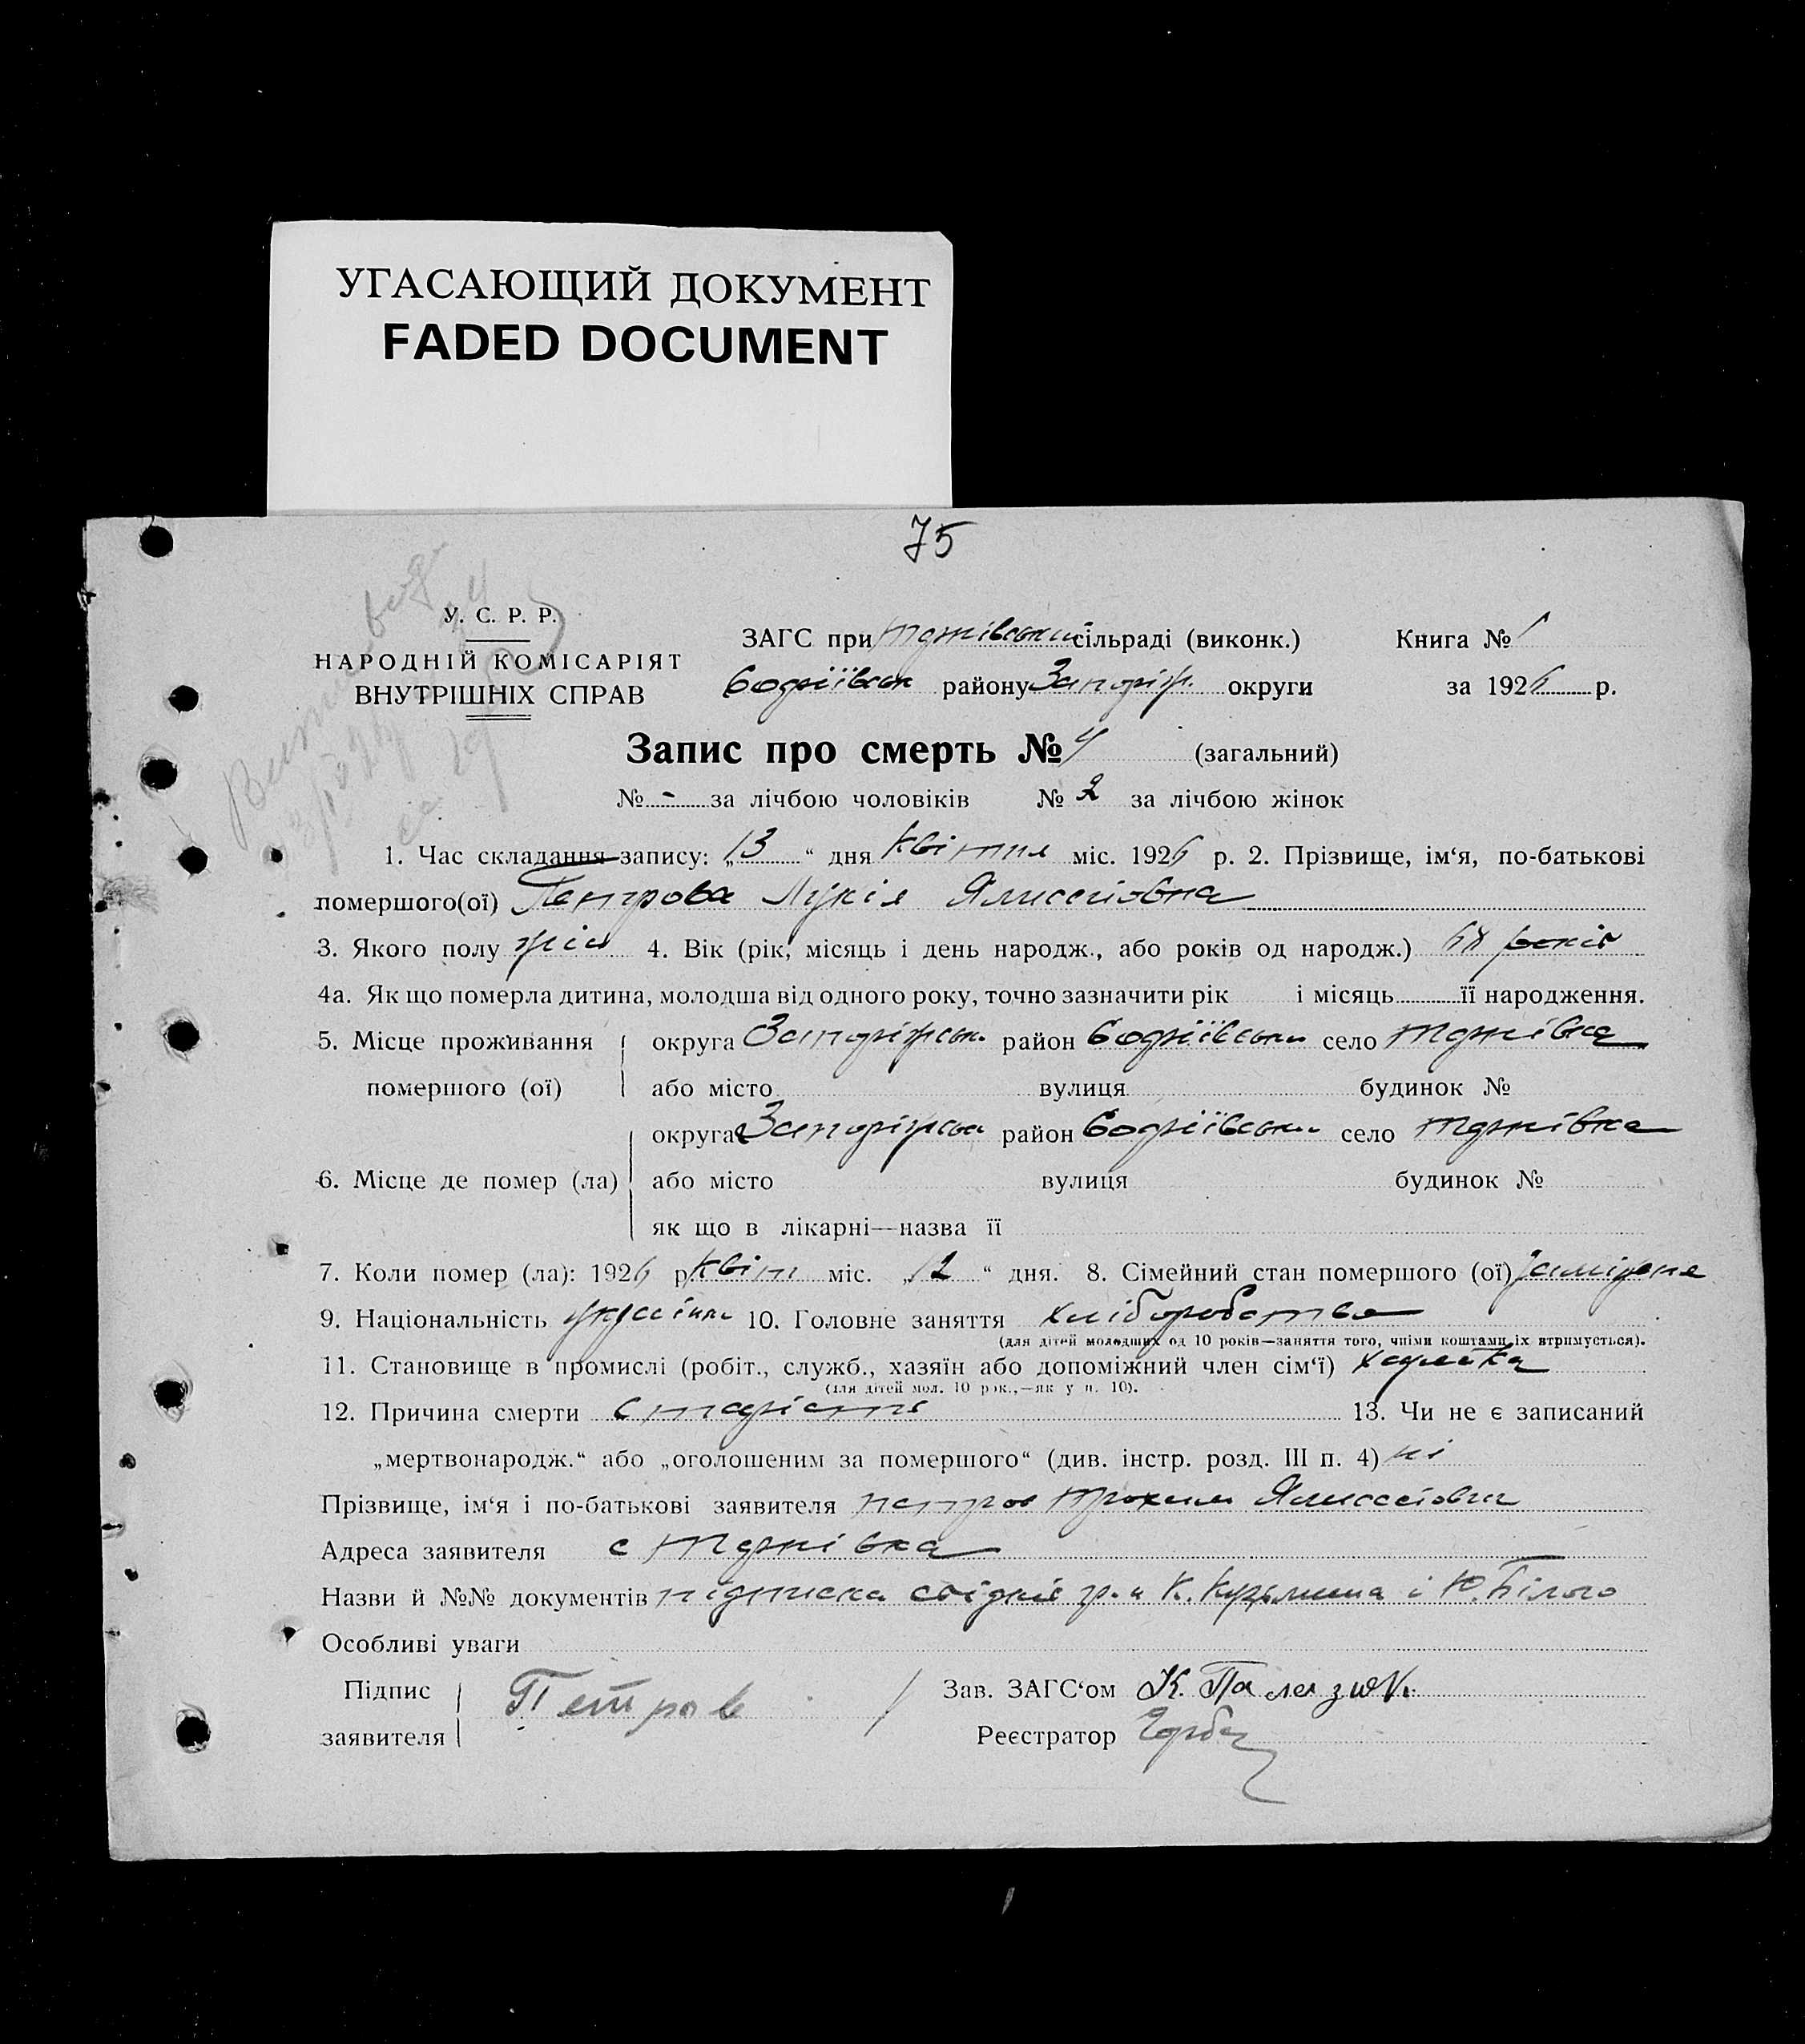 УГАСАЮЩИЙ ДОКУМЕНТ
FADED DOCUMENT
75
У. С. Р. Р.
НАРОДНІЙ КОМІСАРІЯТ
ВНУТРІШНІХ СПРАВ
ЗАГС при сільраді (виконк.)
району Запоріж. округи
Книга № 1
за 1926 р.
Запис про смерть № 4 (загальний)
№ - за лічбою чоловіків № 2 за лічбою жінок
1. Час складання запису: „13“ дня квітня міс. 1926 р. 2. Прізвище, ім‘я, по-батькові
помершого(ої) Петрова Лукія
3. Якого полу жін 4. Вік (рік, місяць і день народж., або років од народж.) років
4а. Як що померла дитина, молодша від одного року, точно зазначити рік і місяць її народження.
5. Місце проживання помершого (ої)
округа Запоріжськ. район село Тернівка
або місто вулиця будинок №
6. Місце де помер (ла)
округа Запоріжськ район село Тернівка
або місто вулиця будинок №
як що в лікарні—назва її
7. Коли помер (ла): 1926 р. квіт міс. „12“ дня. 8. Сімейний стан помершого (ої) заміжня
9. Національність україн 10. Головне заняття хліборобство
(для дітей молодших од 10 років—заняття того, чиїми коштами їх втримується).
11. Становище в промислі (робіт., служб., хазяїн або допоміжний член сім‘ї)
(для дітей мол. 10 рок.,—як у п. 10).
12. Причина смерти старість 13. Чи не є записаний
„мертвонародж.“ або „оголошеним за помершого“ (див. інстр. розд. III п. 4) ні
Прізвище, ім‘я і по-батькові заявителя Петров Трохим
Адреса заявителя с Тернівка
Назви й №№ документів підписка свідків гр.н К. Кузьмина і Ю. Білого
Особливі уваги
Підпис заявителя Петров
Зав. ЗАГС‘ом К.
Реєстратор